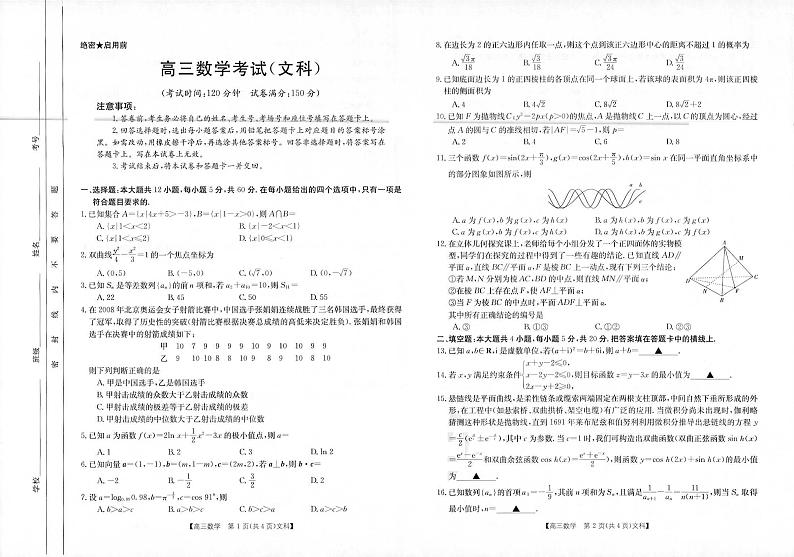 绝密★启用前
高三数学考试(文科)
(考试时间:120分钟 试卷满分:150分)
注意事项:
1.答卷前,考生务必将自己的姓名、考生号、考场号和座位号填写在答题卡上。
2.回答选择题时,选出每小题答案后,用铅笔把答题卡上对应题目的答案标号涂
黑。如需改动,用橡皮擦干净后,再选涂其他答案标号。回答非选择题时,将答案写在
答题卡上。写在本试卷上无效。
3.考试结束后,将本试卷和答题卡一并交回。
一、选择题:本大题共12小题,每小题5分,共60分.在每小题给出的四个选项中,只有一项是
符合题目要求的.
1.已知集合A={x|4x+5>-3},B={x|1-x>0},则A∩B=
A.{x|1<x<2} B.{x|-2<x<1}
C.{x|1<x≤2} D.{x|0≤x<1}
2.双曲线y²/4-x²/3=1的一个焦点坐标为
A.(0,5) B.(-5,0) C.(√7,0) D.(0,-√7)
3.已知Sₙ是等差数列{aₙ}的前n项和,若a₂+a₁₀=10,则S₁₁=
A.22 B.45 C.50 D.55
4.在2008年北京奥运会女子射箭比赛中,中国选手张娟娟连续战胜了三名韩国选手,最终获得
了冠军,取得了历史性的突破(射箭比赛根据决赛总成绩的高低来决定胜负).张娟娟和韩国
选手在决赛中的射箭成绩如下:
甲 10 7 9 9 9 9 10 10 9 9 9 10
乙 9 10 10 8 10 10 8 10 8 9 8 9
则下列判断正确的是
A.甲是中国选手,乙是韩国选手
B.甲射击成绩的众数大于乙射击成绩的众数
C.甲射击成绩的极差等于乙射击成绩的极差
D.甲射击成绩的中位数大于乙射击成绩的中位数
5.已知a为函数f(x)=2ln x+1/2x²-3x的极小值点,则a=
A.1 B.2 C.3 D.ln 2
6.已知向量a=(1,-1),b=(m,1-m),c=(2m,2),若a⊥b,则b·c=
A.-2 B.-1/2 C.3/2 D.2
7.设a=log₀.₉₈0.98,b=π,c=cos 91°,则
A.b>a>c B.a>b>c C.b>c>a D.a>c>b
【高三数学 第1页(共4页)文科】
8.在边长为2的正六边形内任取一点,则这个点到该正六边形中心的距离不超过1的概率为
A.√3π/18 B.√3/18 C.√3π/24 D.√3/24
9.已知底面边长为1的正四棱柱的各顶点在同一个球面上,若该球的表面积为4π,则该正四棱
柱的侧面积为
A.4 B.4√2 C.8√2 D.8√2+2
10.已知F为抛物线C:y²=2px(p>0)的焦点,A是抛物线C上一点,现以C的顶点为圆心,经过
点A的圆与C的准线相切,若|AF|=√5-1,则p=
A.2 B.4 C.6 D.8
11.三个函数f(x)=sin(2x+π/3),g(x)=cos(2x+π/5),h(x)=sin x在同一平面直角坐标系中
的部分图象如图所示,则
a b
c
A.a为f(x),b为g(x),c为h(x) B.a为h(x),b为f(x),c为g(x)
C.a为g(x),b为f(x),c为h(x) D.a为h(x),b为g(x),c为f(x)
12.在立体几何探究课上,老师给每个小组分发了一个正四面体的实物模
型,同学们在探究的过程中得到了一些有趣的结论.已知直线AD∥
平面α,直线BC∥平面α,F是棱BC上一动点,现有下列三个结论:
①若M,N分别为棱AC,BD的中点,则直线MN∥平面α;
②在棱BC上存在点F,使AF⊥平面α;
③当F为棱BC的中点时,平面ADF⊥平面α.
其中所有正确结论的编号是
A.③ B.①③ C.①② D.②③
二、填空题:本大题共4小题,每小题5分,共20分.把答案填在答题卡中的横线上.
13.已知a,b∈R,i是虚数单位,若(a+i)²=b+6i,则a+b=▲.
14.若x,y满足约束条件{x+y-2≤0, x-2y-2≤0, 2x-y+2≥0,则目标函数z=y-3x的最小值为▲.
15.悬链线是平面曲线,是柔性链条或缆索两端固定在两根支柱顶部,中间自然下垂所形成的外
形,在工程中(如悬索桥、双曲拱桥、架空电缆)有广泛的应用.当微积分尚未出现时,伽利略
猜测这种形状是抛物线,直到1691年莱布尼兹和伯努利利用微积分推导出悬链线的方程y
=c/2(eˣ/ᶜ+e⁻ˣ/ᶜ),其中c为参数.当c=1时,我们可构造出双曲函数(双曲正弦函数sin h(x)
=(eˣ-e⁻ˣ)/2和双曲余弦函数cos h(x)=(eˣ+e⁻ˣ)/2,则函数y=cos h(2x)+sin h(x)的最小值
为▲.
16.已知数列{aₙ}的首项a₁=-1/9,其前n项和为Sₙ,且满足1/aₙ₊₁-1/aₙ=11/n(n+1),则当Sₙ取得
最小值时,n=▲.
【高三数学 第2页(共4页)文科】
学校
班级
姓名
考号
密 封 线 内 不 要 答 题